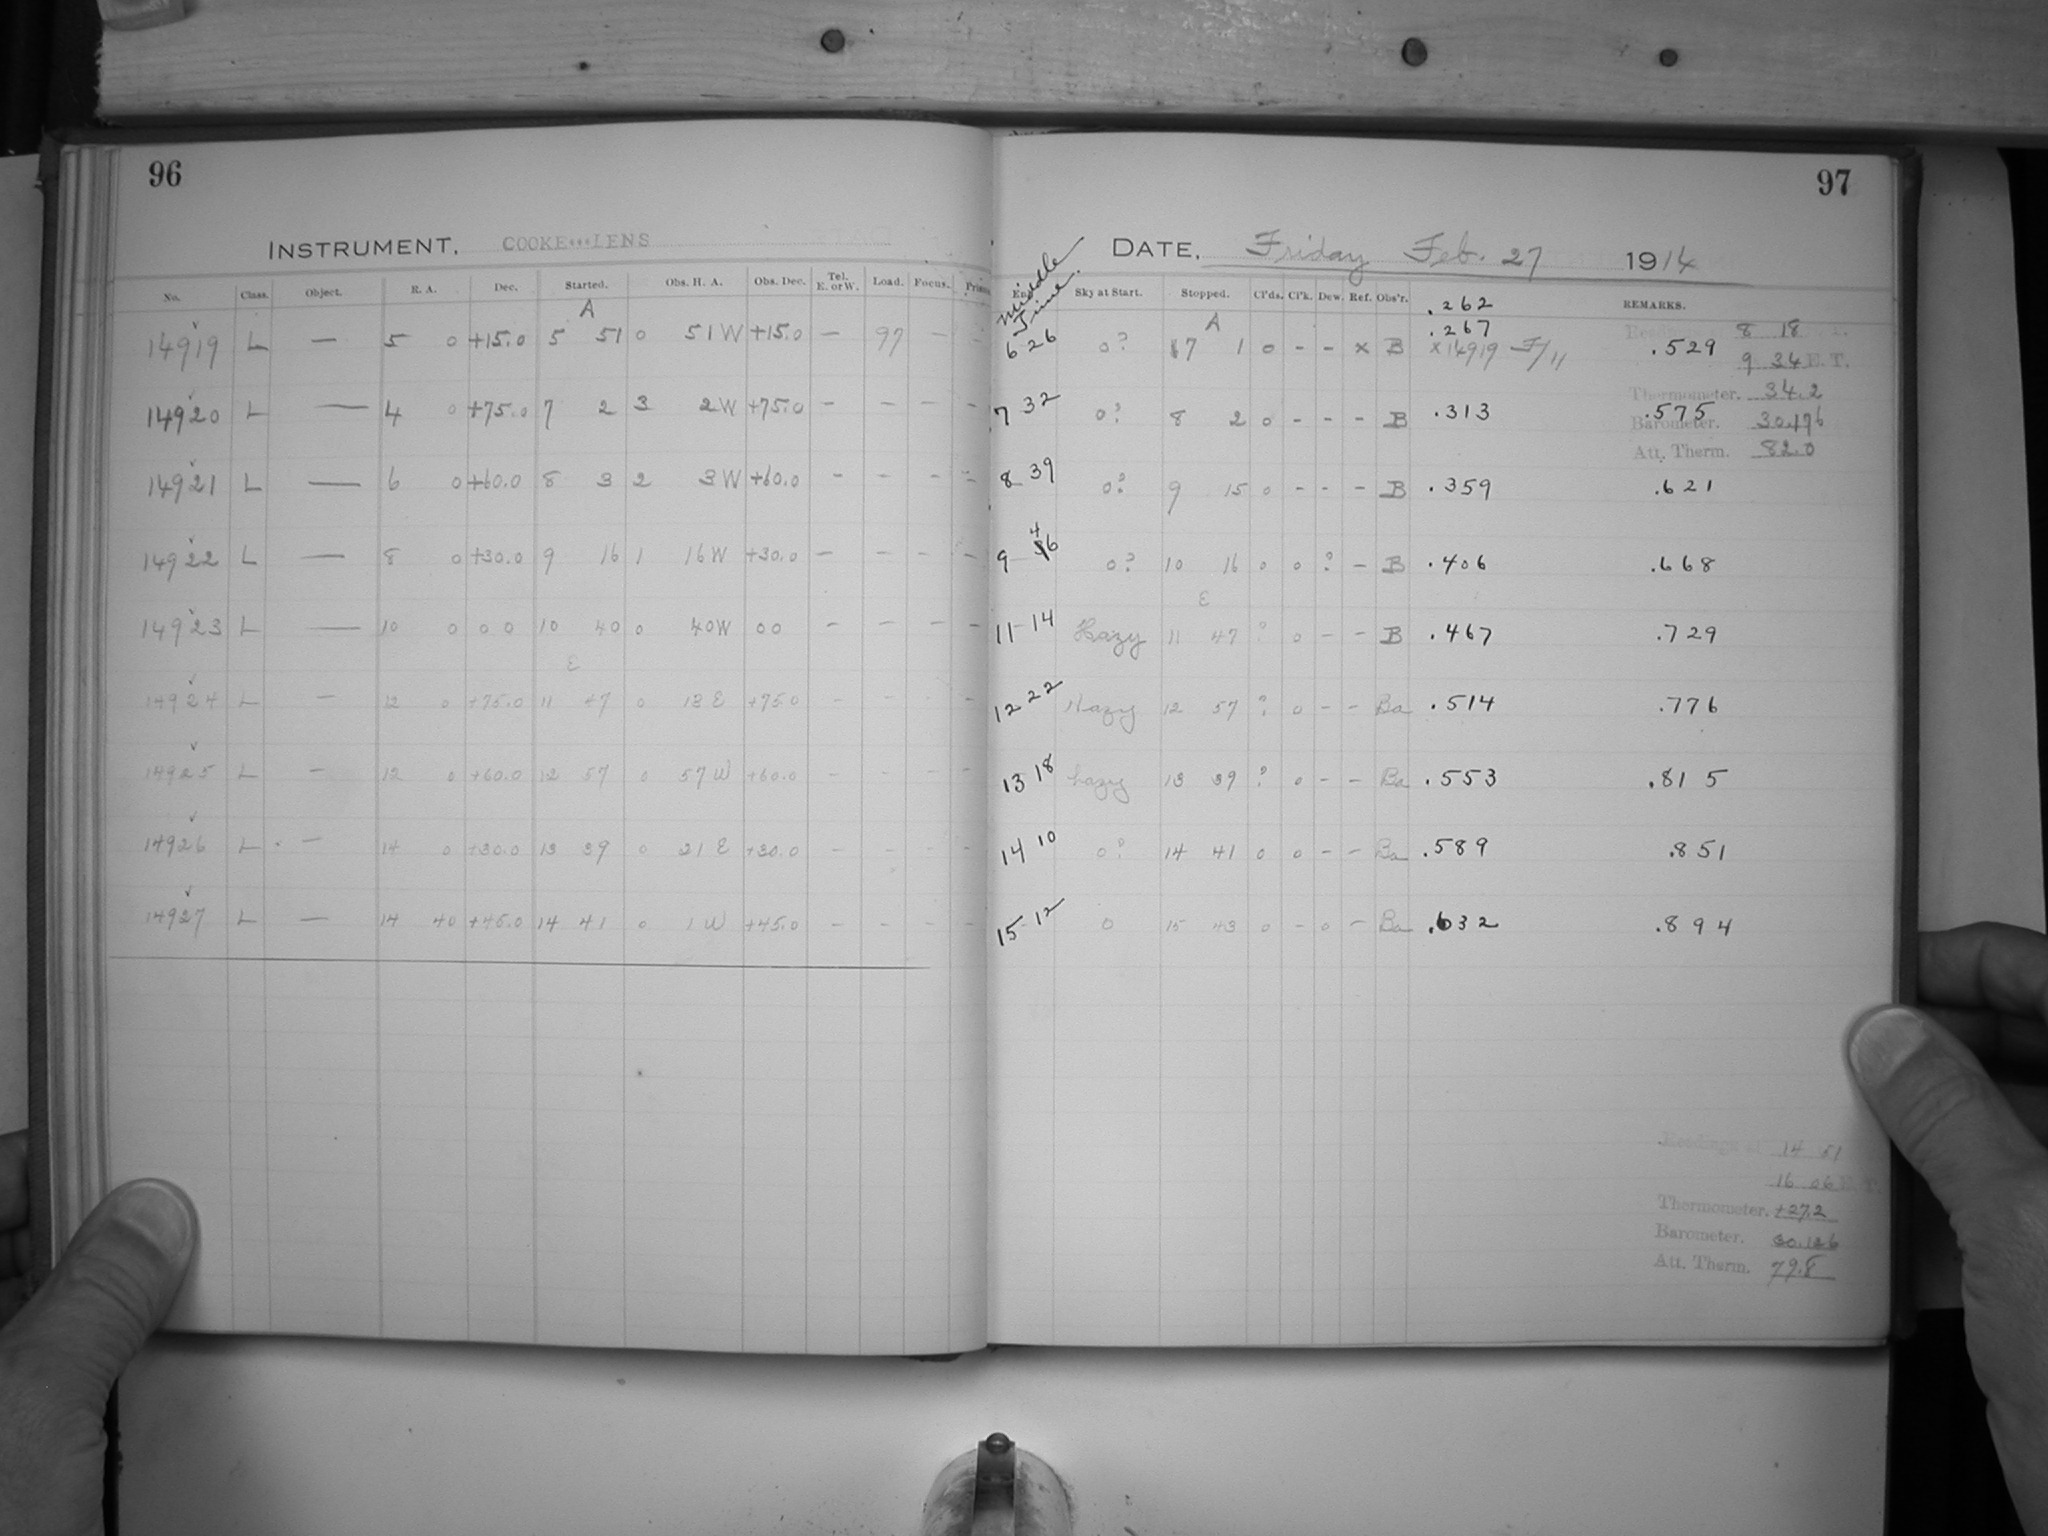 96
INSTRUMENT. COOKE LENS
No. Class. Object. R. A. Dec. Started. Obs. H. A. Obs. Dec. Tel. E. or W. Load. Focus.
A
14919 L — 5 0 +15.0 5 51 0 51 W +15.0 — 97 — —
14920 L — 4 0 +75.0 7 2 3 2 W +75.0 — — — —
14921 L — 6 0 +60.0 8 3 2 3 W +60.0 — — — —
14922 L — 8 0 +30.0 9 16 1 16 W +30.0 — — — —
14923 L — 10 0 0 0 10 40 0 40 W 0 0 — — — —
E
14924 L — 12 0 +75.0 11 47 0 13 E +75.0 — — — —
14925 L — 12 0 +60.0 12 57 0 57 W +60.0 — — — —
14926 L — 14 0 +30.0 13 39 0 21 E +30.0 — — — —
14927 L — 14 40 +45.0 14 41 0 1 W +45.0 — — — —
97
DATE. Friday Feb. 27 1914
Middle Time.
Sky at Start. Stopped. Cl'ds. Cl'k. Dew. Ref. Obs'r. REMARKS.
.262
A .267
6 26 0? 7 1 0 - - x B x 14919 F/11 .529
7 32 0? 8 2 0 - - - B .313 .575
8 39 0? 9 15 0 - - - B .359 .621
9 46 0? 10 16 0 0 ? - B .406 .668
E
11 14 Hazy 11 47 ? 0 - - B .467 .729
12 22 Hazy 12 57 ? 0 - - Ba .514 .776
13 18 hazy 13 39 ? 0 - - Ba .553 .815
14 10 0? 14 41 0 0 - - Ba .589 .851
15 12 0 15 43 0 - 0 - Ba .632 .894
8 18
9 34 E. T.
Thermometer. 34.2
Barometer. 30.176
Att. Therm. 82.0
Readings at 14 51
16 06 E. T.
Thermometer. +27.2
Barometer. 30.126
Att. Therm. 79.8